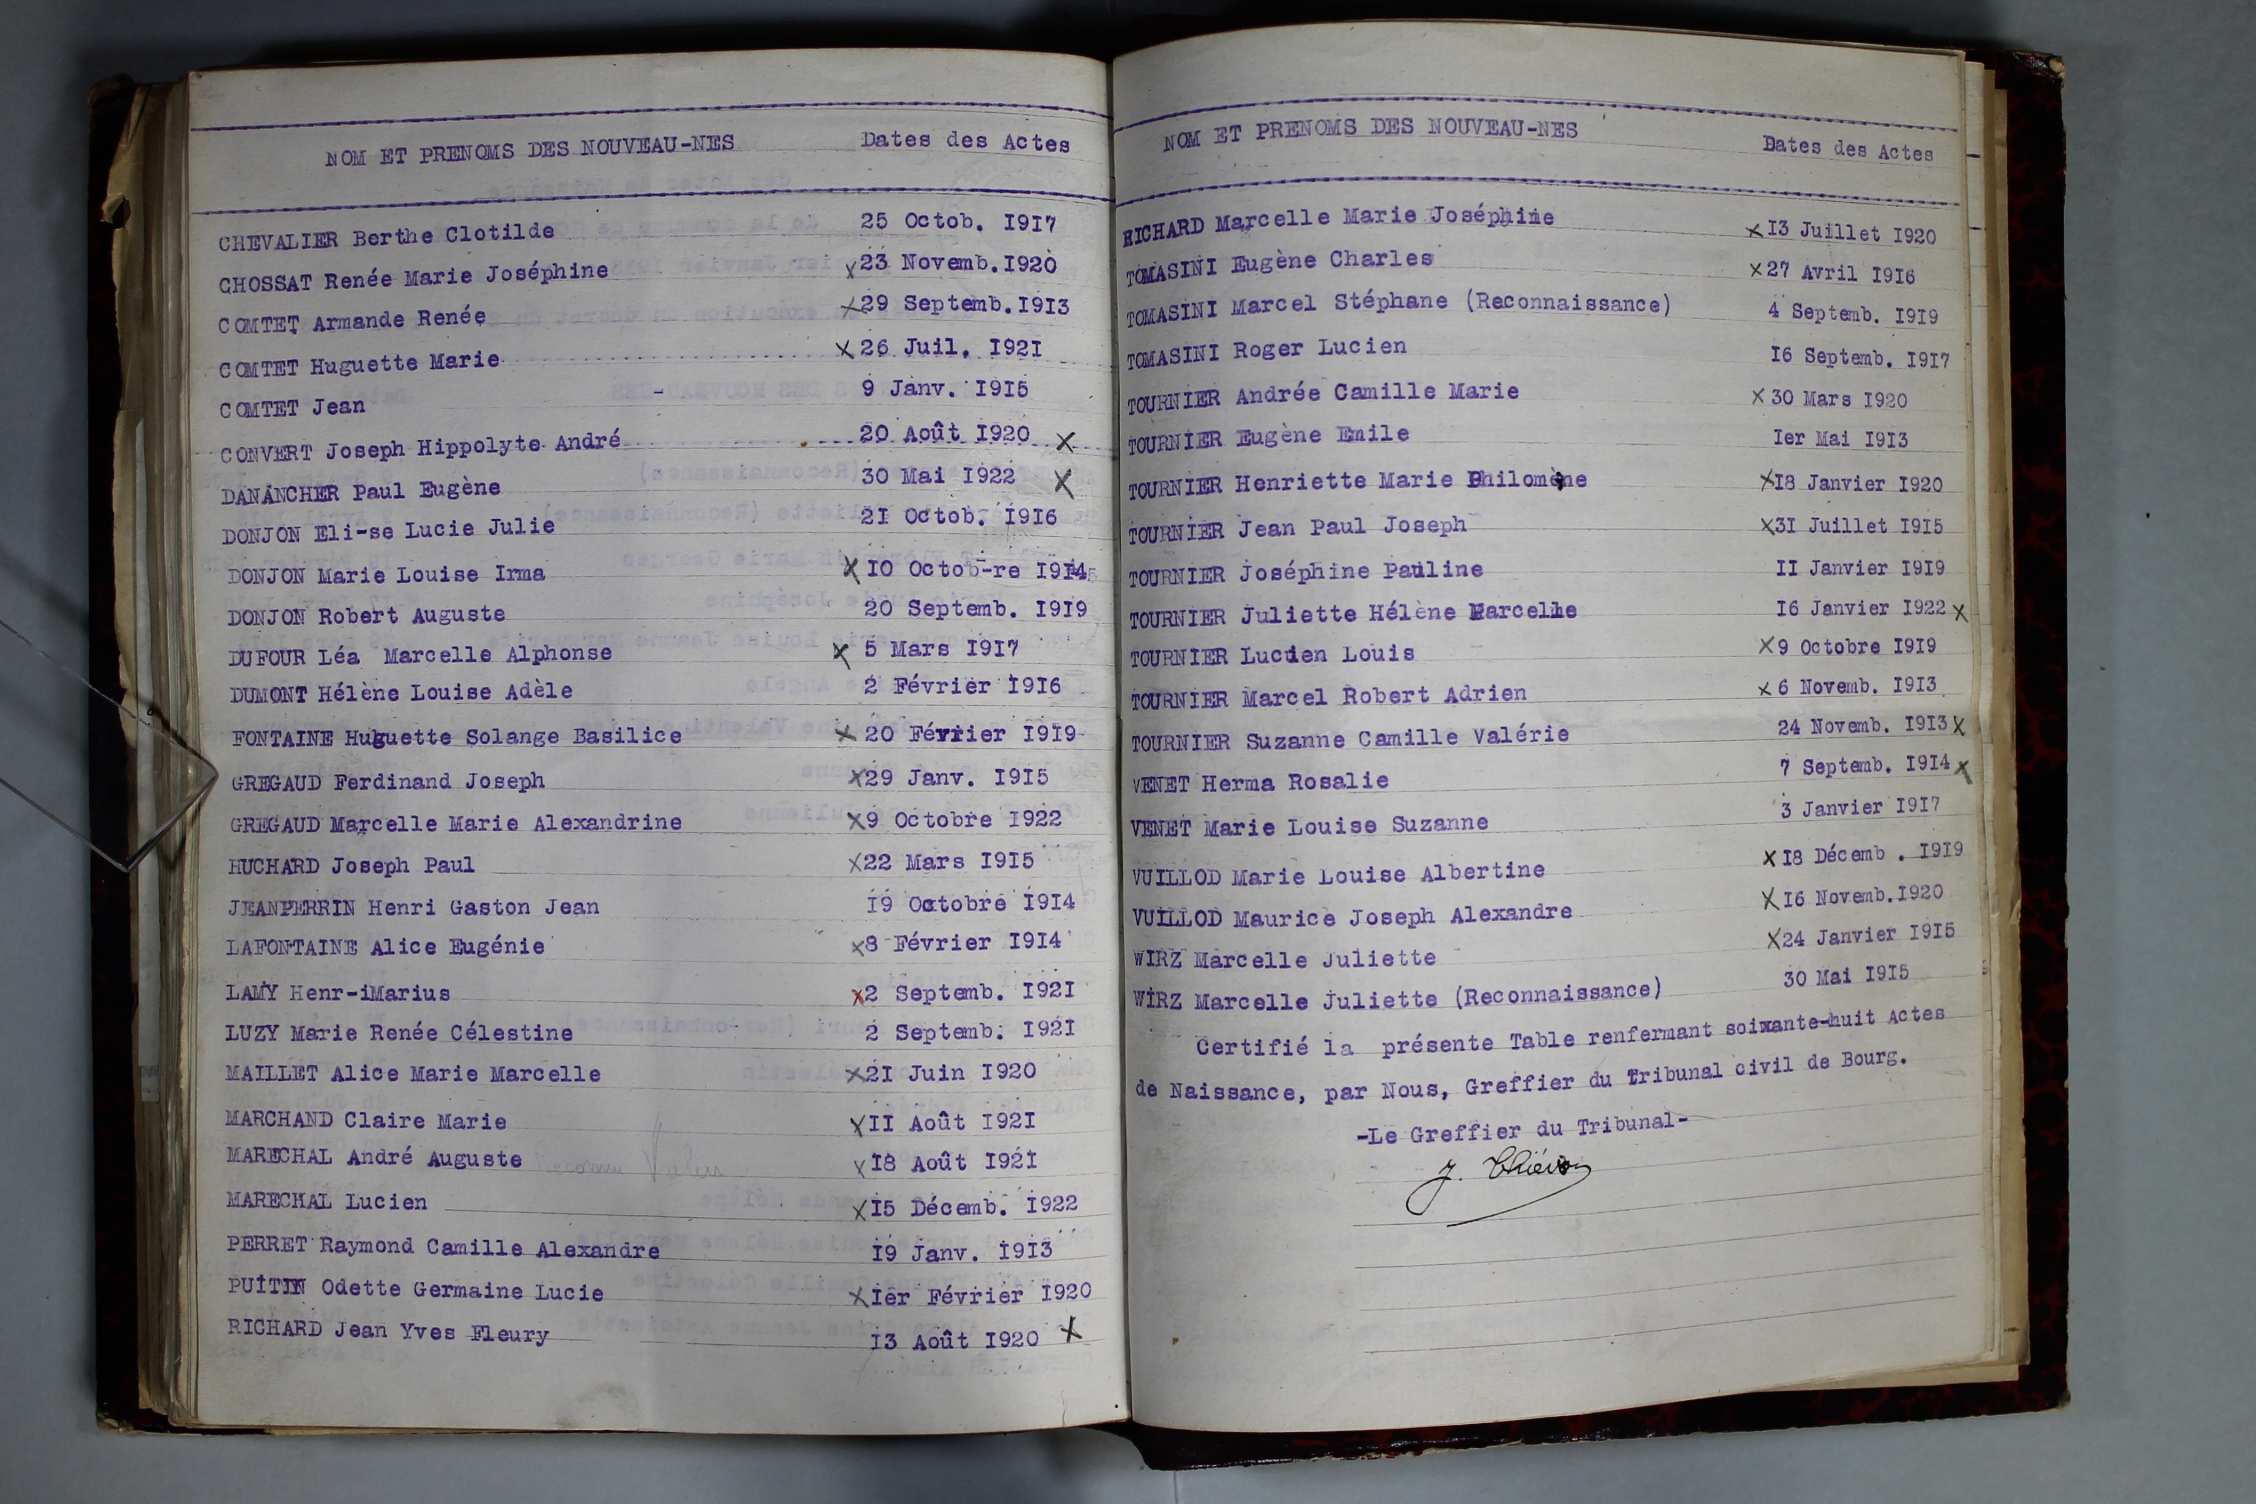 NOM ET PRENOMS DES NOUVEAU-NES Dates des Actes
CHEVALIER Berthe Clotilde 25 Octob. 1917
CHOSSAT Renée Marie Joséphine X 23 Novemb. 1920
COMTET Armande Renée X 29 Septemb. 1913
COMTET Huguette Marie X 26 Juil. 1921
COMTET Jean - 9 Janv. 1915
CONVERT Joseph Hippolyte André 20 Août 1920 X
DANANCHER Paul Eugène 30 Mai 1922 X
DONJON Eli-se Lucie Julie 21 Octob. 1916
DONJON Marie Louise Irma X 10 Octob-re 1914
DONJON Robert Auguste 20 Septemb. 1919
DUFOUR Léa Marcelle Alphonse X 5 Mars 1917
DUMONT Hélène Louise Adèle 2 Février 1916
FONTAINE Huguette Solange Basilice X 20 Février 1919
GREGAUD Ferdinand Joseph X 29 Janv. 1915
GREGAUD Marcelle Marie Alexandrine X 9 Octobre 1922
HUCHARD Joseph Paul X 22 Mars 1915
JEANPERRIN Henri Gaston Jean 19 Octobre 1914
LAFONTAINE Alice Eugénie X 8 Février 1914
LAMY Henr-iMarius X 2 Septemb. 1921
LUZY Marie Renée Célestine 2 Septemb. 1921
MAILLET Alice Marie Marcelle X 21 Juin 1920
MARCHAND Claire Marie X 11 Août 1921
MARECHAL André Auguste X 18 Août 1921
MARECHAL Lucien X 15 Décemb. 1922
PERRET Raymond Camille Alexandre 19 Janv. 1913
PUITIN Odette Germaine Lucie X 1er Février 1920
RICHARD Jean Yves Fleury 13 Août 1920 X
NOM ET PRENOMS DES NOUVEAU-NES Dates des Actes
RICHARD Marcelle Marie Joséphine X 13 Juillet 1920
TOMASINI Eugène Charles X 27 Avril 1916
TOMASINI Marcel Stéphane (Reconnaissance) 4 Septemb. 1919
TOMASINI Roger Lucien 16 Septemb. 1917
TOURNIER Andrée Camille Marie X 30 Mars 1920
TOURNIER Eugène Emile 1er Mai 1913
TOURNIER Henriette Marie Philomène X 18 Janvier 1920
TOURNIER Jean Paul Joseph X 31 Juillet 1915
TOURNIER Joséphine Pauline 11 Janvier 1919
TOURNIER Juliette Hélène Marcelle 16 Janvier 1922 X
TOURNIER Lucien Louis X 9 Octobre 1919
TOURNIER Marcel Robert Adrien X 6 Novemb. 1913
TOURNIER Suzanne Camille Valérie 24 Novemb. 1913 X
VENET Herma Rosalie 7 Septemb. 1914 X
VENET Marie Louise Suzanne 3 Janvier 1917
VUILLOD Marie Louise Albertine X 18 Décemb . 1919
VUILLOD Maurice Joseph Alexandre X 16 Novemb. 1920
WIRZ Marcelle Juliette X 24 Janvier 1915
WIRZ Marcelle Juliette (Reconnaissance) 30 Mai 1915
Certifié la présente Table renfermant soixante-huit Actes
de Naissance, par Nous, Greffier du Tribunal civil de Bourg.
-Le Greffier du Tribunal-